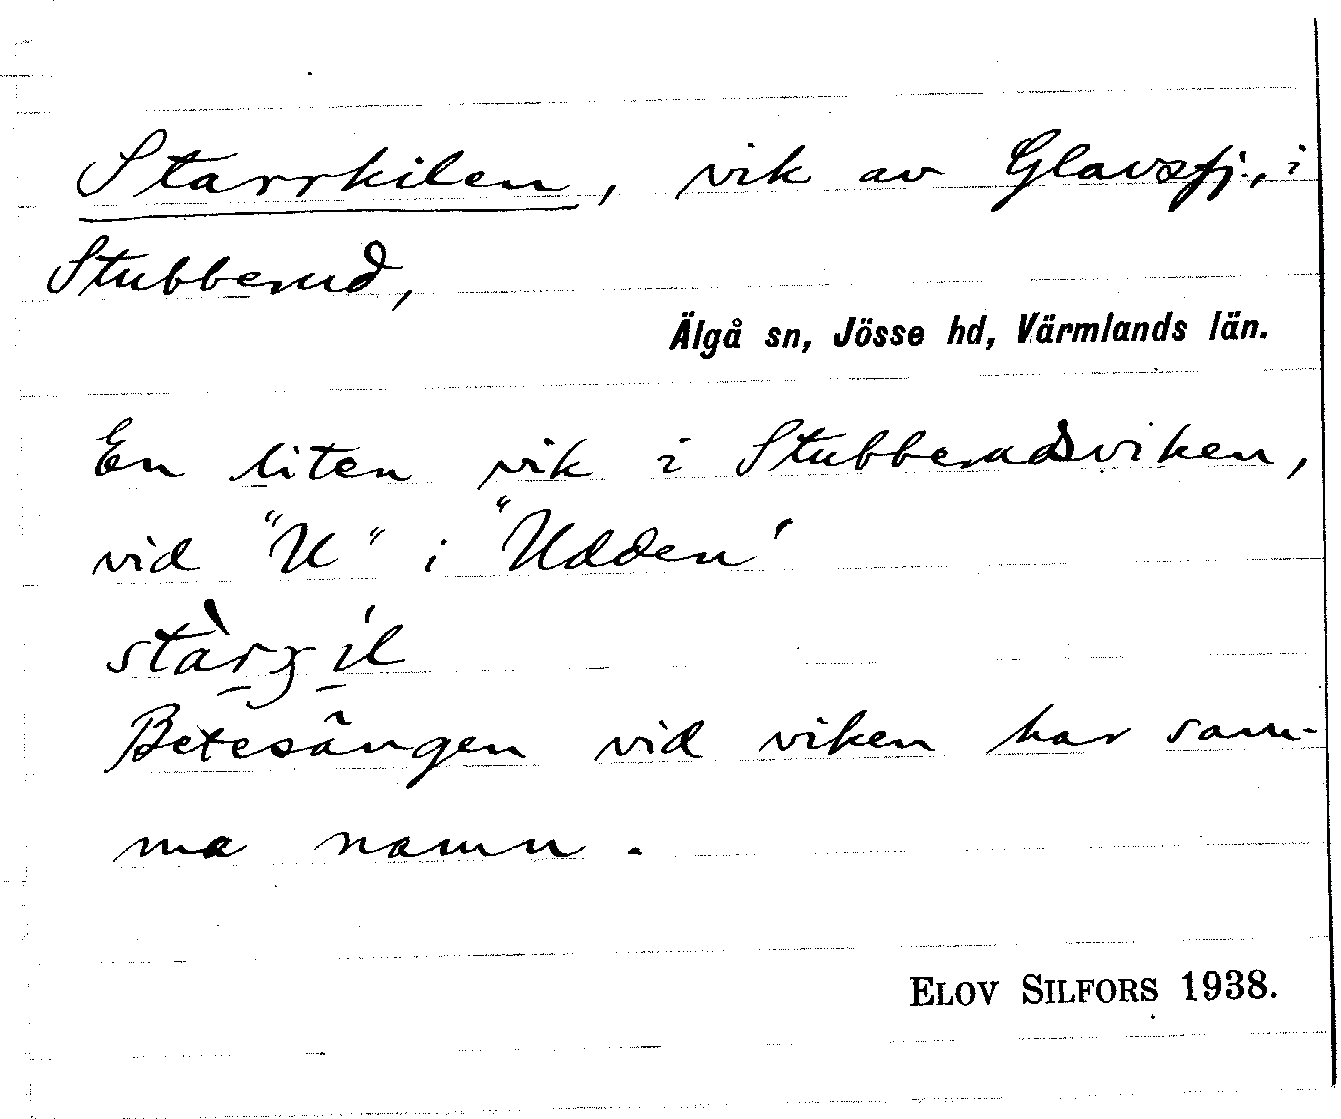 Starrkilen, vik av Glavsfj., i
Stubberud,
Älgå sn, Jösse hd, Värmlands län.
En liten vik i Stubberudsviken,
vid "U" i "Udden"
Betesängen vid viken har sam-
ma namn.
ELOV SILFORS 1938.